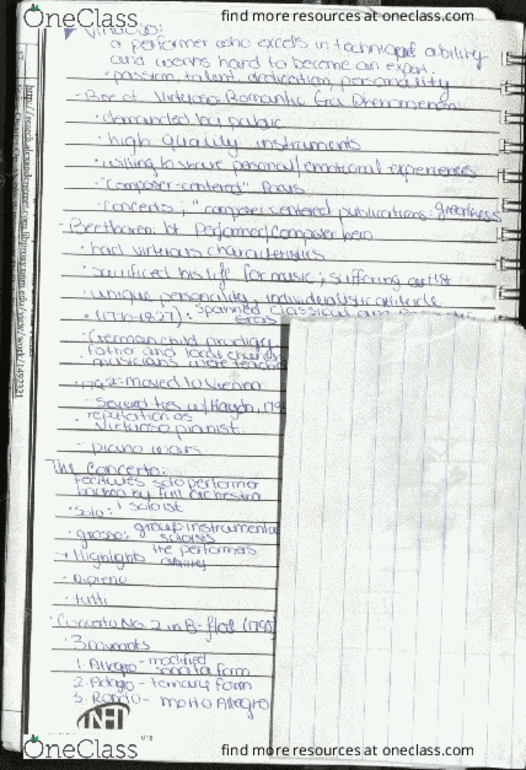 OneClass
find more resources at oneclass.com
Virtuoso:
a performer who excels in technical ability
and works hard to become an expert.
• passion, talent, dedication, personality
- Rise of Virtuoso: Romantic Era Phenomenon
• demanded by public
• high quality instruments
• willing to share personal/emotional experiences
• "composer-centered" focus
• concerts; "composer centered publications: greatness
- Beethoven: 1st Performer/Composer hero
• had virtuous characteristics
• sacrificed his life for music; suffering artist
• unique personality, individualistic attitude
• (1770-1827): spanned classical
eras
• German child prodigy
• father and local church
musicians were teache
• 1792: moved to Vienna
- Severed ties w/ Haydn, 179
reputation as
• virtuoso pianist
- piano wars
The Concerto:
features solo performer
backed by full orchestra
• solo: 1 soloist
• grosso: group instrumental
soloists
+ Highlights the performers
ability
• Ripieno
• tutti
• Concerto No. 2 in B-flat (1795
• 3 movments
1. Allegro - modified
sonata form
2. Adagio - ternary form
3. Rondo - molto Allegro
OneClass
find more resources at oneclass.com